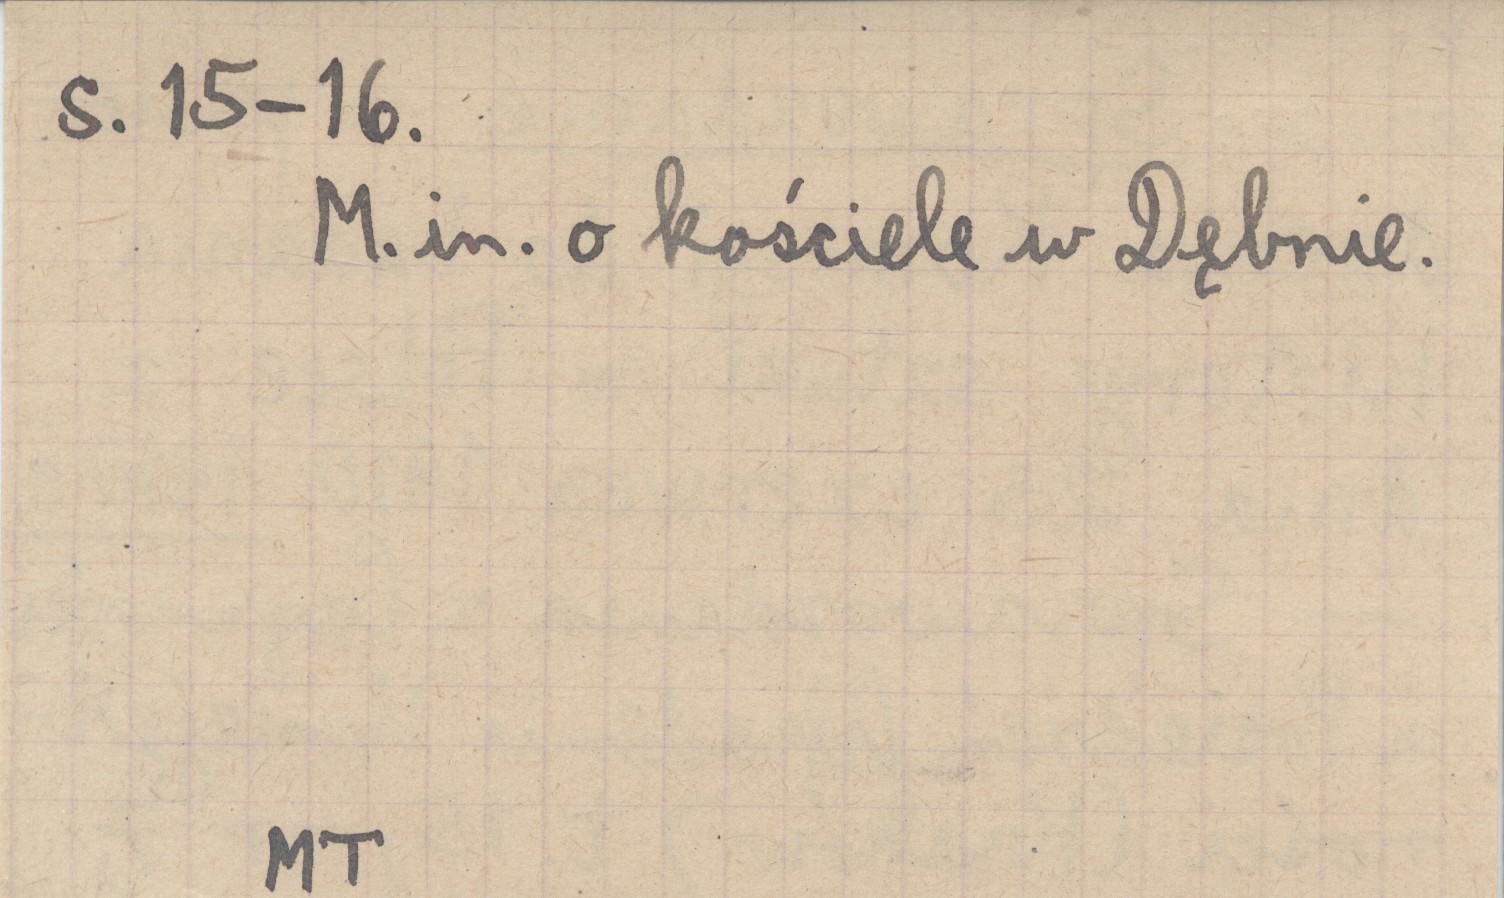 s. 15-16.
M. in. o kościele w Dębnie.
MT